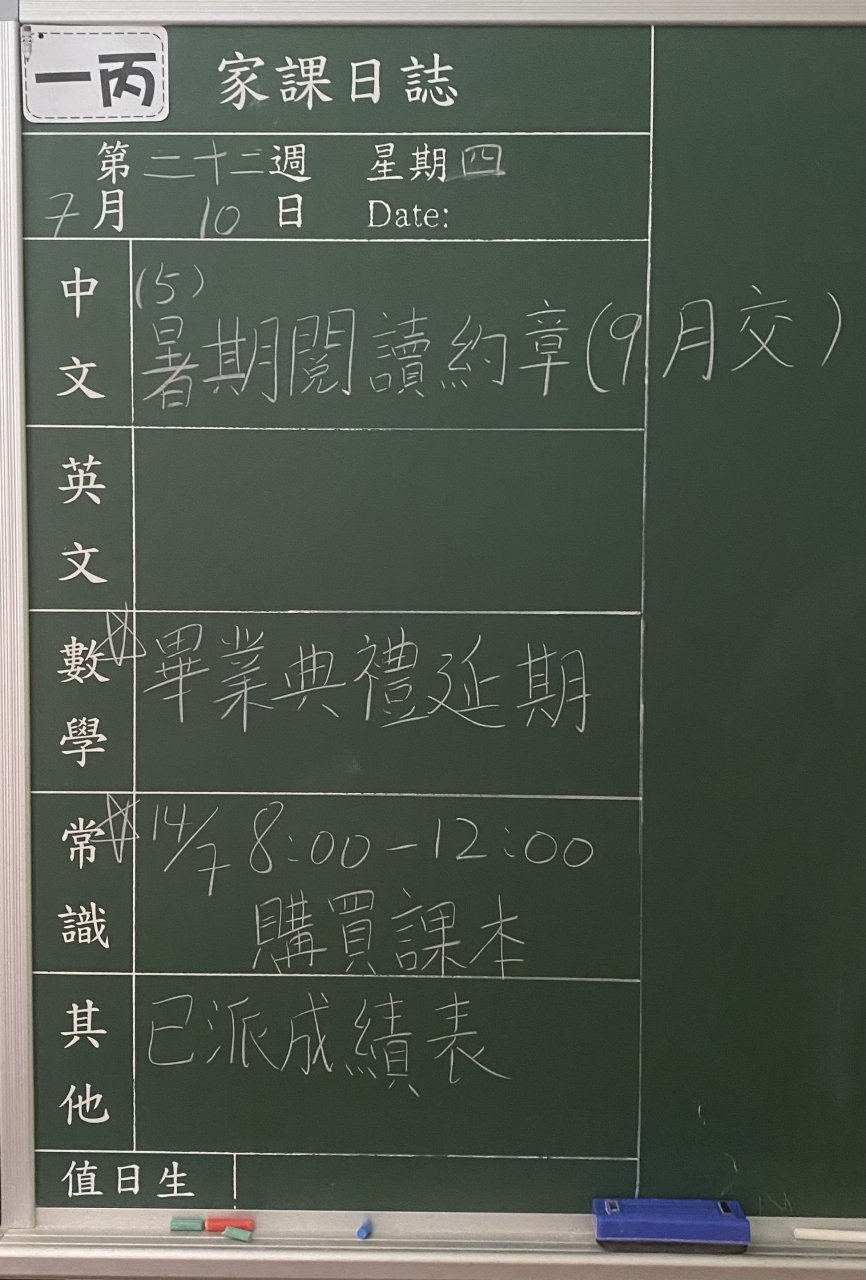 一丙 家課日誌
第二十二週 星期四
7月10日 Date:
中文 (5)
暑期閱讀約章(9月交)
英文
數學 ☆畢業典禮延期
常識 ☆14/7 8:00-12:00
購買課本
其他 已派成績表
值日生